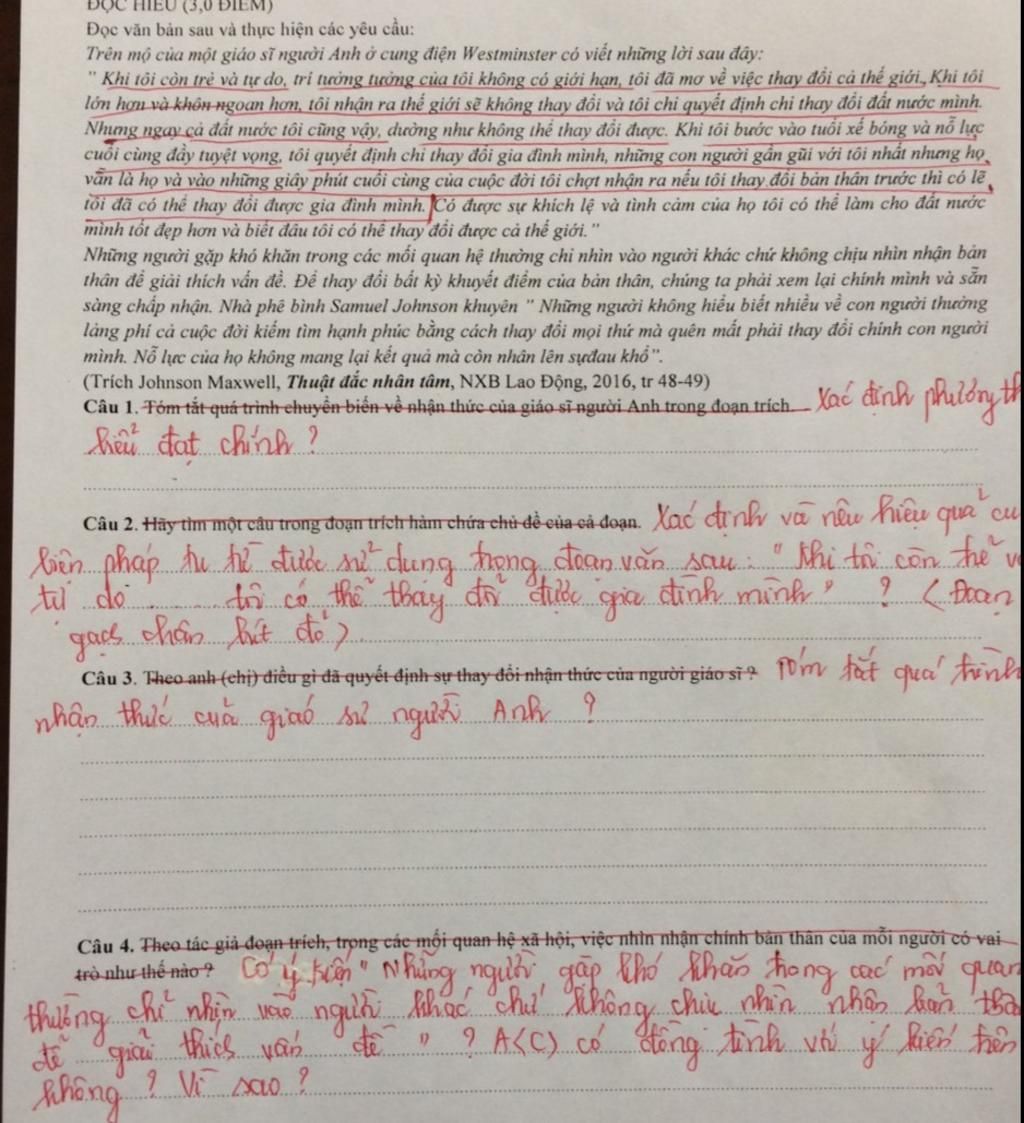 ĐỌC HIỂU (3,0 ĐIỂM)
Đọc văn bản sau và thực hiện các yêu cầu:
Trên mộ của một giáo sĩ người Anh ở cung điện Westminster có viết những lời sau đây:
" Khi tôi còn trẻ và tự do, trí tưởng tượng của tôi không có giới hạn, tôi đã mơ về việc thay đổi cả thế giới. Khi tôi
lớn hơn và khôn ngoan hơn, tôi nhận ra thế giới sẽ không thay đổi và tôi chỉ quyết định chỉ thay đổi đất nước mình.
Nhưng ngay cả đất nước tôi cũng vậy, dường như không thể thay đổi được. Khi tôi bước vào tuổi xế bóng và nỗ lực
cuối cùng đầy tuyệt vọng, tôi quyết định chỉ thay đổi gia đình mình, những con người gần gũi với tôi nhất nhưng họ
vẫn là họ và vào những giây phút cuối cùng của cuộc đời tôi chợt nhận ra nếu tôi thay đổi bản thân trước thì có lẽ
tôi đã có thể thay đổi được gia đình mình. Có được sự khích lệ và tình cảm của họ tôi có thể làm cho đất nước
mình tốt đẹp hơn và biết đâu tôi có thể thay đổi được cả thế giới."
Những người gặp khó khăn trong các mối quan hệ thường chỉ nhìn vào người khác chứ không chịu nhìn nhận bản
thân để giải thích vấn đề. Để thay đổi bất kỳ khuyết điểm của bản thân, chúng ta phải xem lại chính mình và sẵn
sàng chấp nhận. Nhà phê bình Samuel Johnson khuyên " Những người không hiểu biết nhiều về con người thường
lảng phí cả cuộc đời kiếm tìm hạnh phúc bằng cách thay đổi mọi thứ mà quên mất phải thay đổi chính con người
mình. Nỗ lực của họ không mang lại kết quả mà còn nhân lên sựđau khổ".
(Trích Johnson Maxwell, Thuật đắc nhân tâm, NXB Lao Động, 2016, tr 48-49)
Câu 1. Tóm tắt quá trình chuyển biến về nhận thức của giáo sĩ người Anh trong đoạn trích. Xác định phương th
biểu đạt chính ?
Câu 2. Hãy tìm một câu trong đoạn trích hàm chứa chủ đề của cả đoạn. Xác định và nêu hiệu quả củ
biện pháp tu từ được sử dụng trong đoạn văn sau: " Khi tôi còn trẻ v
tự do ........ tôi có thể thay đổi được gia đình mình " ? ( Đoạn
gạch chân bút đỏ )
Câu 3. Theo anh (chị) điều gì đã quyết định sự thay đổi nhận thức của người giáo sĩ ? Tóm tắt quá trình
nhận thức của giáo sư người Anh ?
Câu 4. Theo tác giả đoạn trích, trong các mối quan hệ xã hội, việc nhìn nhận chính bản thân của mỗi người có vai
trò như thế nào ? Có ý kiến " Những người gặp khó khăn trong các mối quan
thường chỉ nhìn vào người khác chứ không chịu nhìn nhận bản thâ
để giải thích vấn đề " ? A(C) có đồng tình với ý kiến trên
không ? Vì sao ?